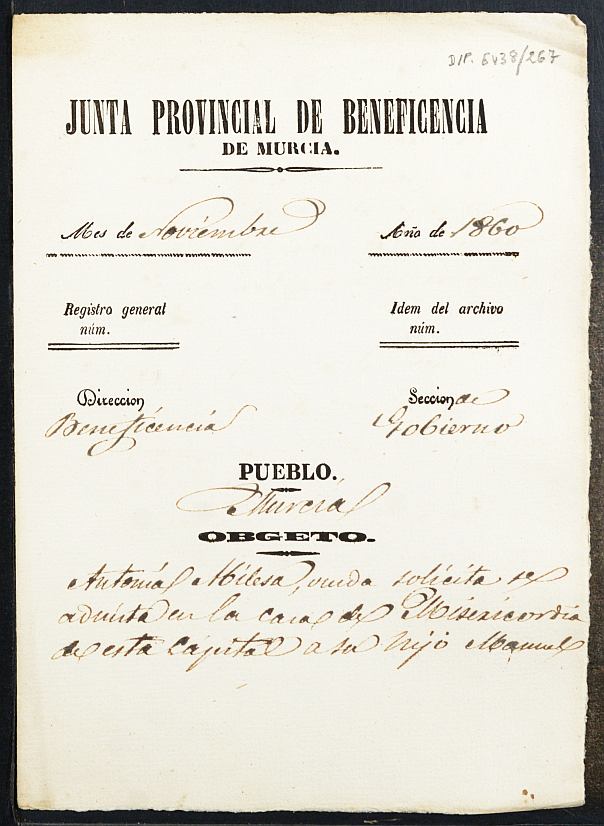 DIP. 6438/267
JUNTA PROVINCIAL DE BENEFICENCIA
DE MURCIA.
Mes de Noviembre Año de 1860
Registro general Idem del archivo
núm. núm.
Direccion Seccion de
Beneficencia Gobierno
PUEBLO.
Murcia
OBGETO.
Antonia Milesa, viuda solicita se
admita en la casa de Misericordia
de esta Capital a su hijo Manuel